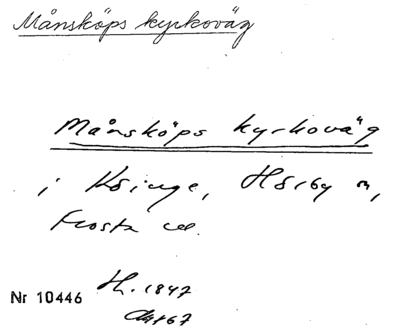 Månsköps kyrkoväg
Månsköps kyrkoväg
i Köinge, Hörby sn,
Frosta
Nr 10446 H. 1847